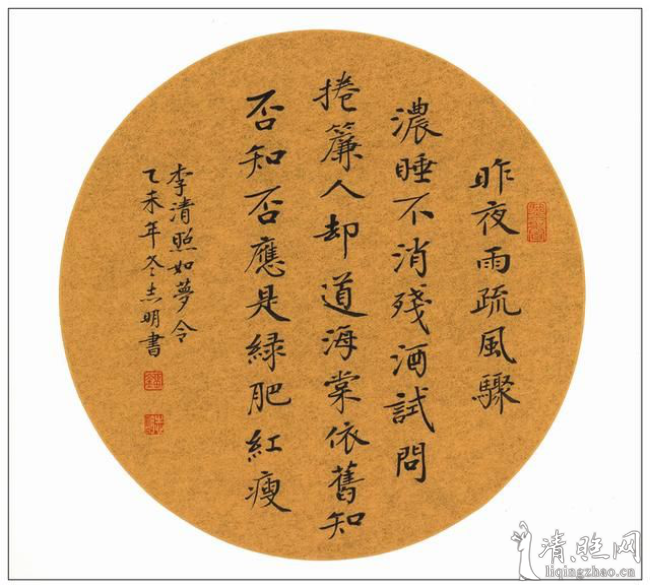 昨夜雨疏風驟
濃睡不消殘酒試問
捲簾人却道海棠依舊知
否知否應是緑肥紅瘦
李清照如夢令
乙未年冬志明書
清照网
liqingzhao.cn